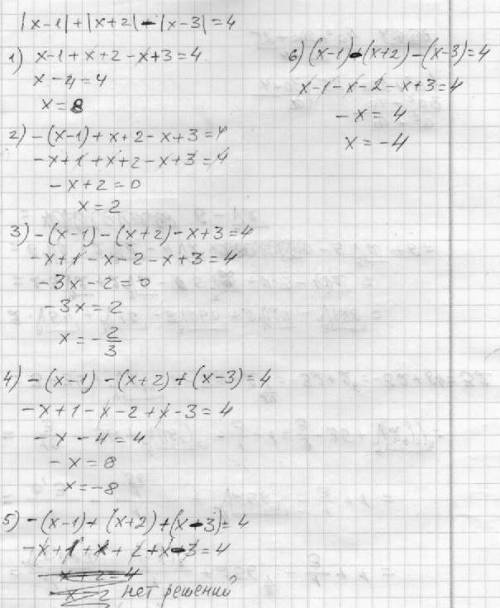 |x-1|+|x+2|-|x-3|=4
1) x-1+x+2-x+3=4
x-4=4
x=8
2) -(x-1)+x+2-x+3=4
-x+1+x+2-x+3=4
-x+2=0
x=2
3) -(x-1)-(x+2)-x+3=4
-x+1-x-2-x+3=4
-3x-2=0
-3x=2
x=-2/3
4) -(x-1)-(x+2)+(x-3)=4
-x+1-x-2+x-3=4
-x-4=4
-x=8
x=-8
5) -(x-1)+(x+2)+(x-3)=4
-x+1+x+2+x-3=4
x+2=4
x=2 нет решений
6) (x-1)-(x+2)-(x-3)=4
x-1-x-2-x+3=4
-x=4
x=-4